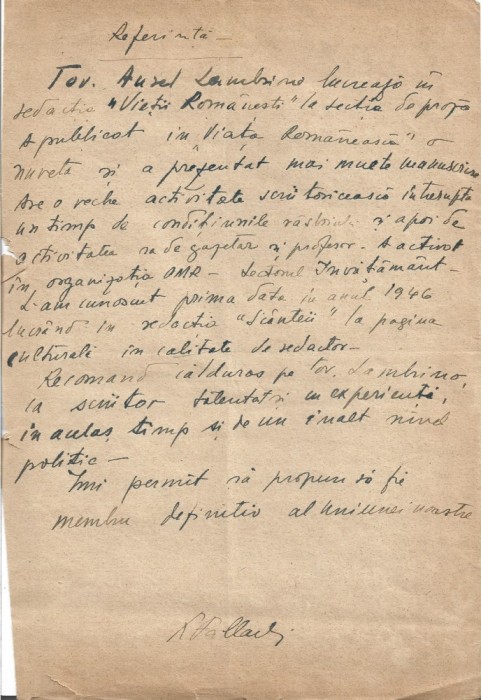 Referință -
Tov. Aurel Lambrino lucrează în
redacția "Vieții Românești" la secția de proză
A publicat in Viața Românească" o
nuvelă și a prezentat mai multe manuscrise
Are o veche activitate scriitoricească intreruptă
un timp de condițiunile răsboiului și apoi de
activitatea sa de gazetar și profesor. A activat
în organizația PMR - Sectorul Învățământ -
L-am cunoscut prima data in anul 1946
lucrând in redacția "Scânteii" la pagina
culturală in calitate de redactor -
Recomand călduros pe tov. Lambrino,
ca scriitor talentat și experiență,
in acelaș timp și de un inalt nivel
politic -
Imi permit să propun să fie
membru definitiv al Uniunei noastre